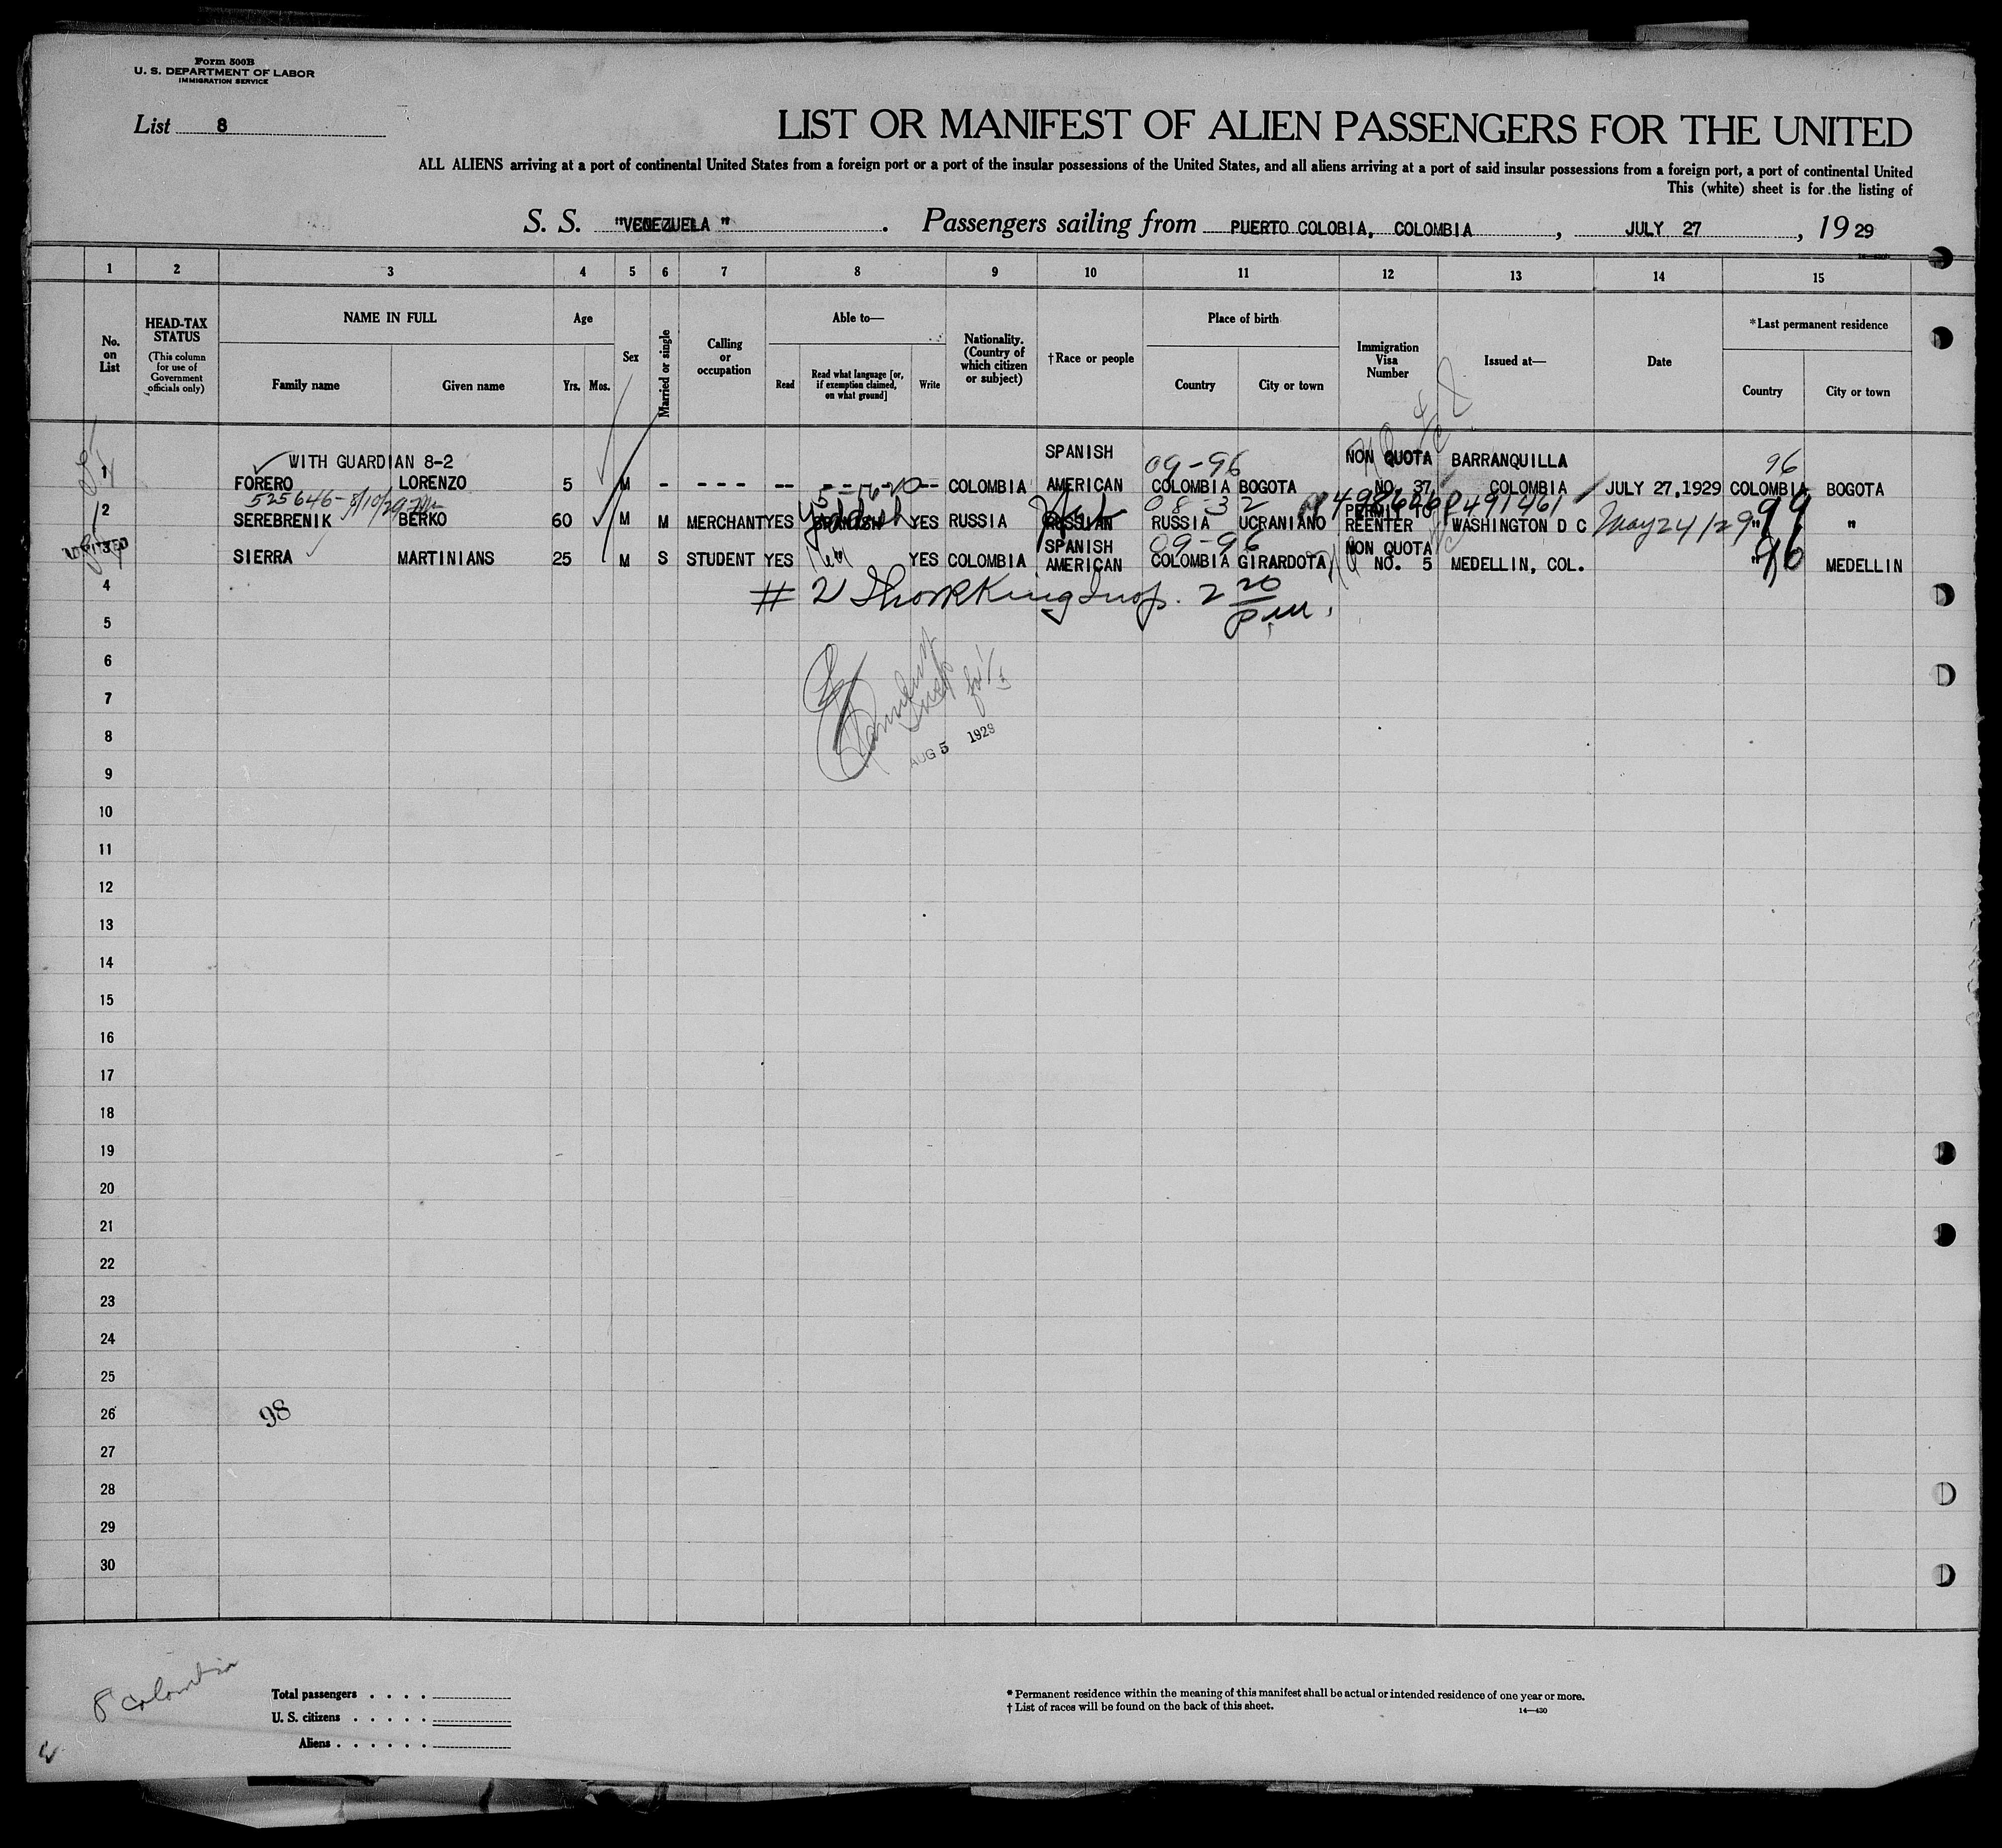 Form 500B
U. S. DEPARTMENT OF LABOR
IMMIGRATION SERVICE
List 8
LIST OR MANIFEST OF ALIEN PASSENGERS FOR THE UNITED
ALL ALIENS arriving at a port of continental United States from a foreign port or a port of the insular possessions of the United States, and all aliens arriving at a port of said insular possessions from a foreign port, a port of continental United
This (white) sheet is for the listing of
S. S. "VENEZUELA" . Passengers sailing from PUERTO COLOBIA, COLOMBIA , JULY 27 , 19 29
1 2 3 4 5 6 7 8 9 10 11 12 13 14 15
No. on List
HEAD-TAX STATUS
(This column for use of Government officials only)
NAME IN FULL
Family name
Given name
Age
Yrs. Mos.
Sex
Married or single
Calling or occupation
Able to—
Read
Read what language [or, if exemption claimed, on what ground]
Write
Nationality. (Country of which citizen or subject)
†Race or people
Place of birth
Country
City or town
Immigration Visa Number
Issued at—
Date
*Last permanent residence
Country
City or town
WITH GUARDIAN 8-2 SPANISH 09-96 NON QUOTA BARRANQUILLA 96
1 FORERO LORENZO 5 M - - - - -- -- COLOMBIA AMERICAN COLOMBIA BOGOTA NO. 37 COLOMBIA JULY 27,1929 COLOMBIA BOGOTA
525646- 8/10/29 08-32 PERMIT TO P491461 99
2 SEREBRENIK BERKO 60 M M MERCHANT YES Yiddish SPANISH YES RUSSIA RUSSIAN RUSSIA UCRANIANO REENTER WASHINGTON D C May 24/29 " "
ADMITTED SPANISH 09-96 NON QUOTA 96
3 SIERRA MARTINIANS 25 M S STUDENT YES YES COLOMBIA AMERICAN COLOMBIA GIRARDOTA NO. 5 MEDELLIN, COL. " MEDELLIN
4
# 2 Insp. 2 20 pm.
5
6
7
8
AUG 5 1929
9
10
11
12
13
14
15
16
17
18
19
20
21
22
23
24
25
26
98
27
28
29
30
8 Colombia
Total passengers . . . .
U. S. citizens . . . . .
Aliens . . . . . .
* Permanent residence within the meaning of this manifest shall be actual or intended residence of one year or more.
† List of races will be found on the back of this sheet.
14—430